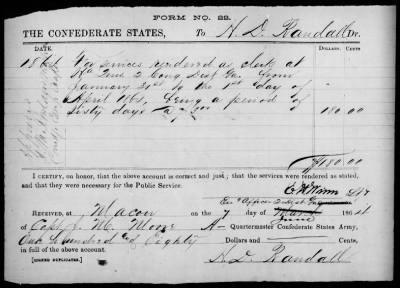 FORM No. 22.
THE CONFEDERATE STATES, To H. D. Randall Dr.
DATE. DOLLARS. CENTS
1864 For services rendered as clerk at
2 Cong Dist Ga. from
January 31st to the 1st day of
April 1864, being a period of
Sixty days 180.00
$180.00
I CERTIFY, on honor, that the above account is correct and just; that the services were rendered as stated,
and that they were necessary for the Public Service.
RECEIVED, at Macon on the 7 day of March June 1864
of Capt J. W. Moore A- Quartermaster Confederate States Army,
One hundred and Eighty Dollars and Cents,
in full of the above account.
[SIGNED DUPLICATES.] H. D. Randall